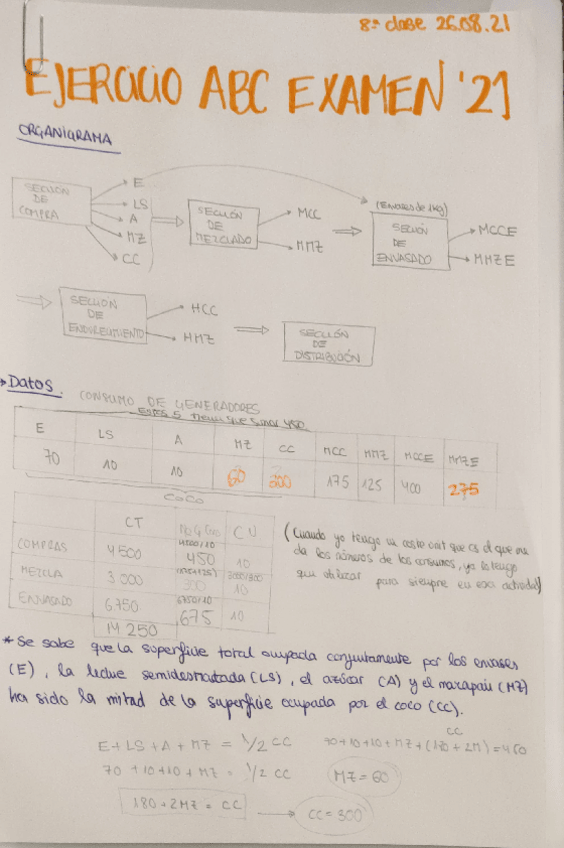 8ª clase 26.08.21
EJERCICIO ABC EXAMEN '21
ORGANIGRAMA
SECCIÓN DE COMPRA
E
LS
A
MZ
CC
SECCIÓN DE MEZCLADO
MCC
MMZ
(Envases de 1kg)
SECCIÓN DE ENVASADO
MCCE
MMZE
SECCIÓN DE ENDURECIMIENTO
HCC
HMZ
SECCIÓN DE DISTRIBUCIÓN
Datos. CONSUMO DE GENERADORES
Estos 5 tienen que sumar 450
E LS A MZ CC MCC MMZ MCCE MMZE
70 10 10 60 300 175 125 400 275
COCO
CT Nº G. CU
4500/10
COMPRAS 4500 450 10
(175+125) 3000/300
MEZCLA 3000 300 10
6750/10
ENVASADO 6.750 675 10
14 250
(Cuando yo tengo un coste unit que es el que me
da los números de los consumos, ya lo tengo
que utilizar para siempre en esa actividad)
* Se sabe que la superficie total ocupada conjuntamente por los envases
(E), la leche semidesnatada (LS), el azúcar (A) y el mazapán (MZ)
ha sido la mitad de la superficie ocupada por el coco (CC).
E + LS + A + MZ = 1/2 CC
CC
70+10+10+MZ+(180+2M)=450
70 + 10 + 10 + MZ = 1/2 CC
MZ = 60
180 + 2MZ = CC
CC = 300